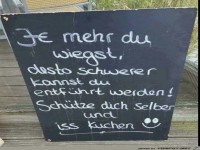 Je mehr du
wiegst,
desto schwerer
kannst du
entführt werden!
Schütze dich selber
und
iss Kuchen